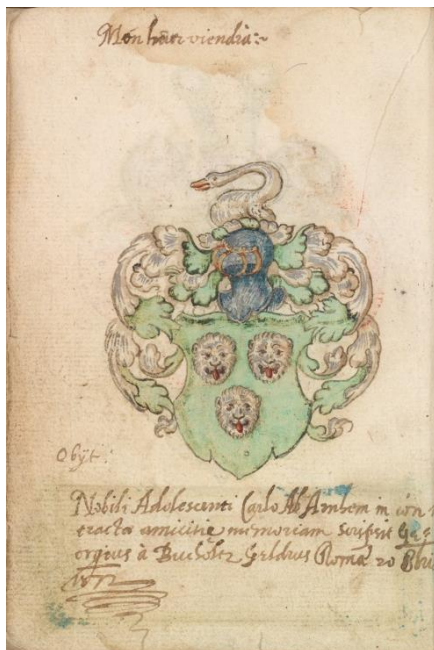 Mon heur viendra:~
Obÿt.
Nobili Adolescenti Carlo Ab Arnhem in con
tracta amicitię memoriam scripsit
orgius à Bucholtz Geldrus Romæ 20